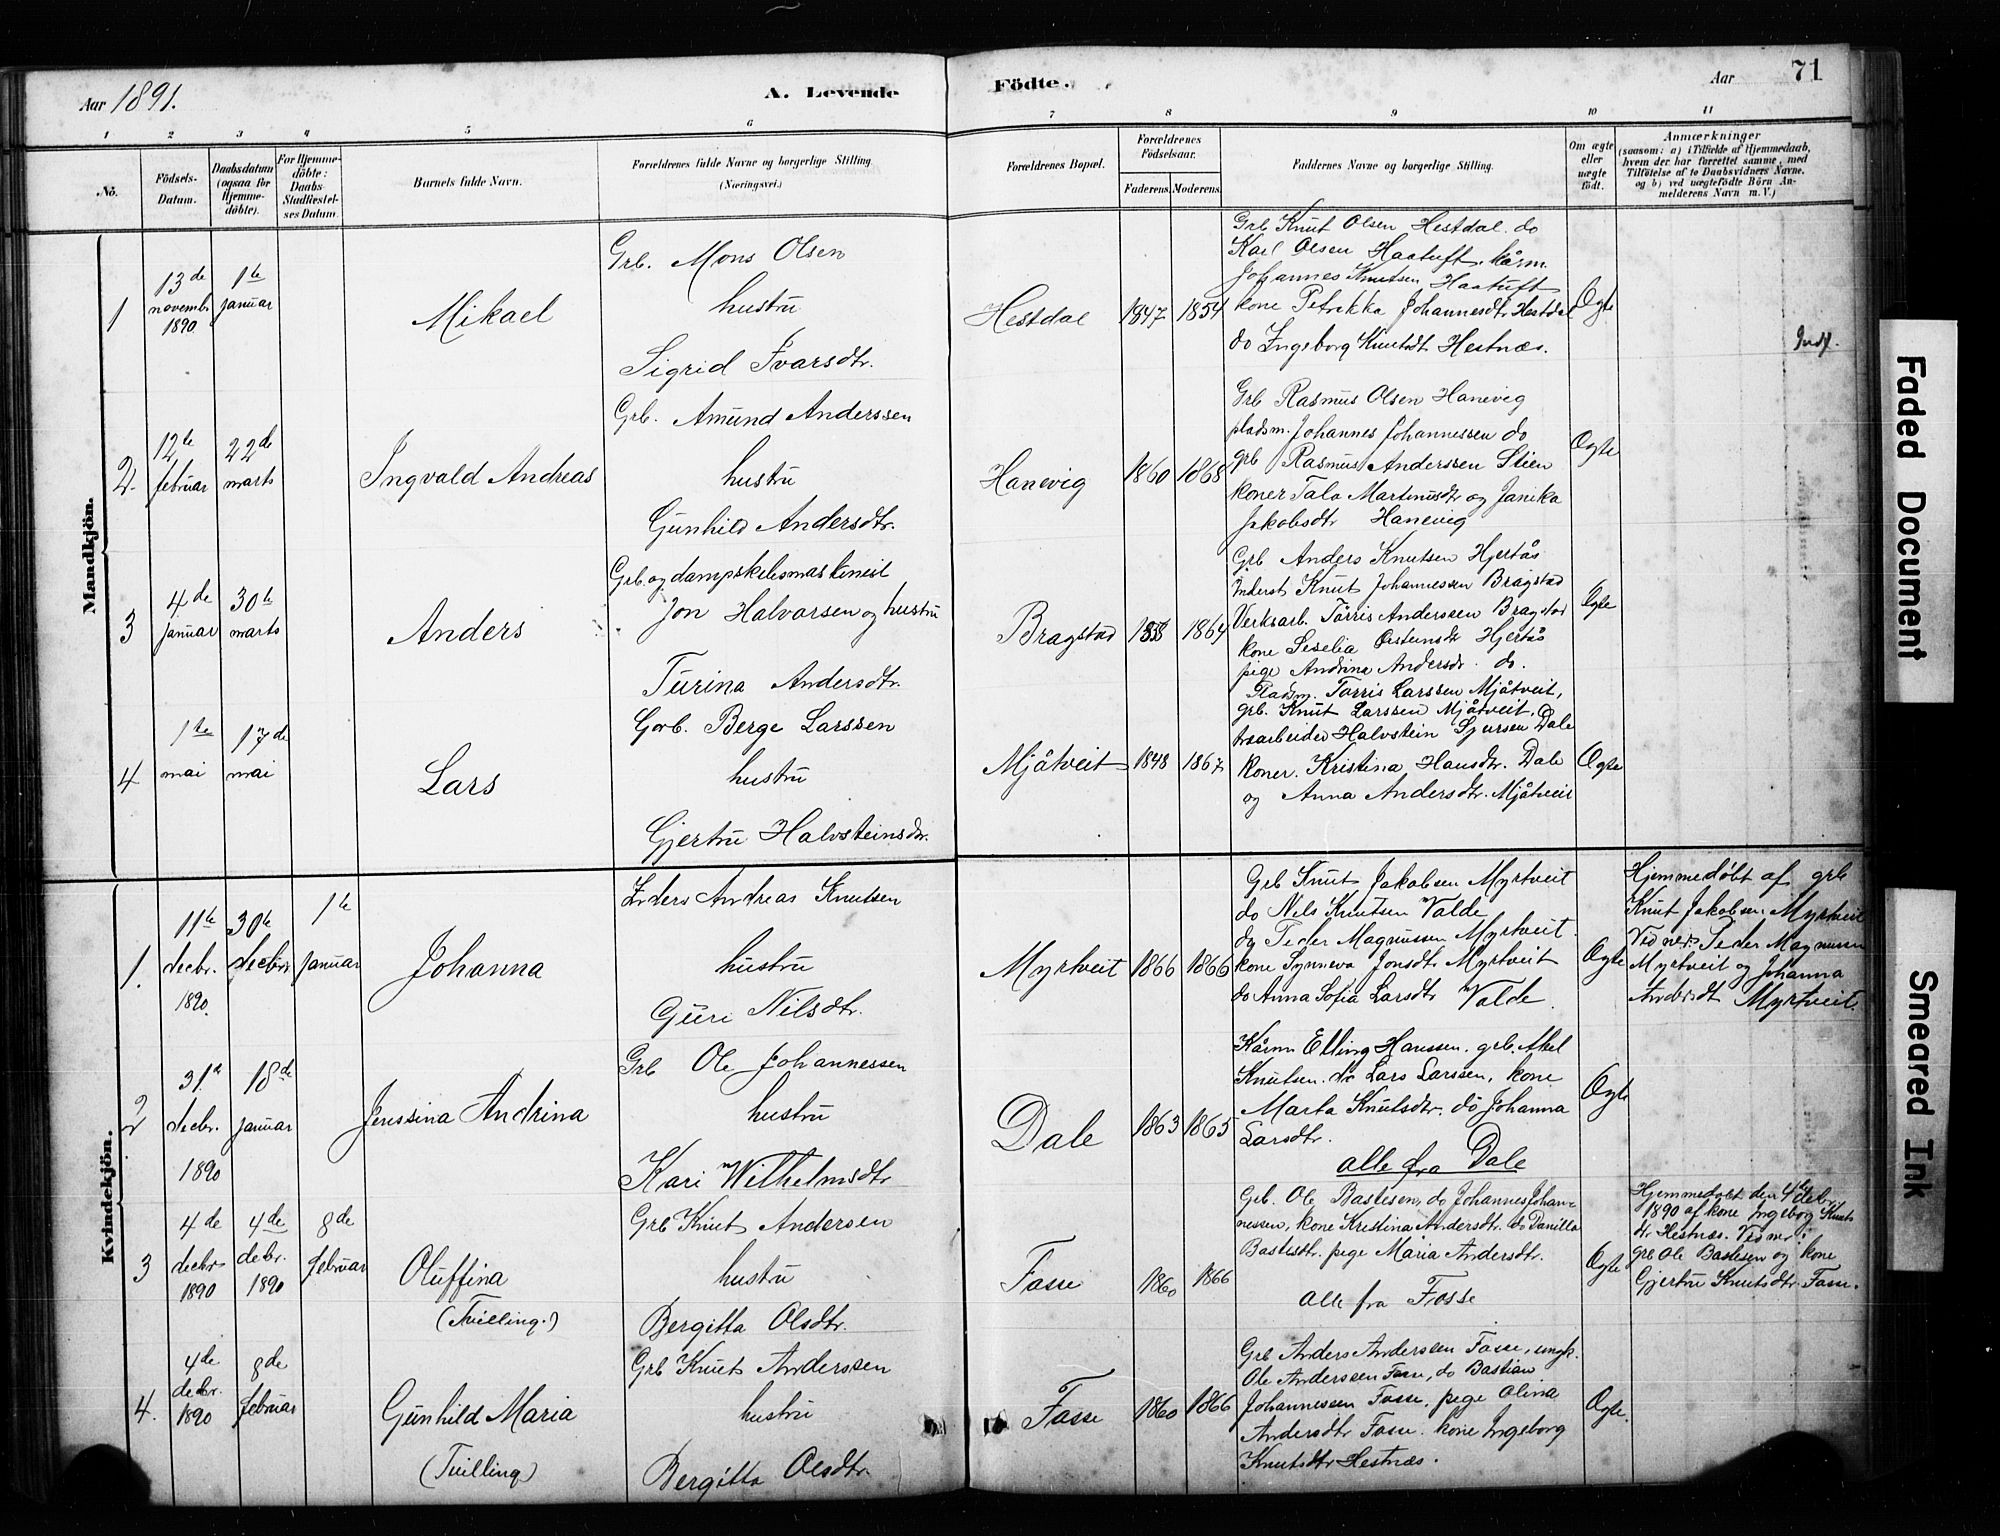 Aar 1891.
A. Levende
Födte.
Aar
71
1
2
3
4
5
6
7
8
9
10
11
No.
Födsels-
Datum.
Daabsdatum
(ogsaa for
Hjemme-
döbte).
For Hjemme-
döbte:
Daabs-
Stadfæstel-
ses Datum.
Barnets fulde Navn.
Forældrenes fulde Navne og borgerlige Stilling
(Næringsvei.)
Forældrenes Bopæl.
Forældrenes
Födselsaar.
Faderens.
Moderens.
Faddernes Navne og borgerlige Stilling.
Om ægte
eller
uægte
født.
Anmærkninger
(saasom: a) i Tilfælde af Hjemmedaab,
hvem der har forrettet samme, med
Tilföielse af to Daabsvidners Navne,
og b) ved uægtefödte Börn An-
melderens Navn m. V.)
Mandkjön.
1
13de
novembr
1890
1te
januar
Mikael
Grb. Mons Olsen
hustru
Sigrid Ivarsdtr.
Hestdal
1847
1854
Grb Knut Olsen Hestdal. do
Karl Olsen Haatuft. kårm.
Johannes Knutsen Haatuft
kone Petrikka Johannesdtr Hestdal
do Ingeborg Knutsdt Hestnæs.
Ogte
Indf.
2
12te
februar
22de
marts
Ingvald Andreas
Grb. Amund Anderssen
hustru
Gunhild Andersdtr.
Hanevig
1860
1868
Grb Rasmus Olsen Hanevig
pladsm. Johannes Johannessen do
grb Rasmus Anderssen Stien
koner Tala Martinusdtr og Janika
Jakobsdtr Hanevig
Ogte
3
4de
januar
30te
marts
Anders
Grb. og dampskibsmaskinist
Jon Halvorsen og hustru
Turina Andersdtr.
Bragstad
1858
1864
Grb Anders Knutsen Hjertås
Inderst Knut Johannessen Bragstad
Verksarb. Tørris Anderssen Bragstad
kone Seselia Orsteinsdt Hjertås
pige Andrina Andersdr. do.
Ogte
4
1te
mai
17de
mai
Lars
Gorb. Berge Larssen
hustru
Gjertru Halvsteinsdtr.
Mjåtveit
1848
1867
Pladsm. Torris Larssen Mjåtveit,
grb. Knut Larssen Mjåtveit.
træarbeider Halvstein Sjursen Dale
koner. Kristina Hansdtr. Dale
og Anna Andersdtr. Mjåtveit
Ogte
Kvindekjön.
1.
11te
decbr.
1890.
30te
decbr
1te
januar
Johanna
Inders Andreas Knutsen
hustru
Guri Nilsdtr.
Myrtveit
1866
1866
Grb Knut Jakobsen Myrtveit
do Nils Knutsen Valde
do Peder Magnussen Myrtveit.
kone Synneva Jonsdtr Myrtveit
do Anna Sofia Larsdtr Valde.
Ogte
Hjemmedøbt af grb
Knut Jakobsen Myrtveit
Vidner: Peder Magnussen
Myrtveit og Johanna
Andersdt Myrtveit.
2
31te
decbr.
1890
18de
januar
Jenssina Andrina
Grb Ole Johannessen
hustru
Kari Wilhelmsdtr
Dale
1863
1865
Kårm Elling Hanssen. grb. Akel
Knutsen. do Lars Larssen, kone
Marta Knutsdtr. do Johanna
Larsdtr.
alle fra Dale
Ogte
3
4de
decbr
1890
4de
decbr.
1890
8de
februar
Oluffina
(Tvilling.)
Grb Knut Andersen
hustru
Bergitta Olsdtr.
Fosse
1860
1866
Grb. Ole Bastesen, do Johannes Johan-
nessen, kone Kristina Andersdtr. do Danilla
Bastisdtr. pige Maria Andersdtr.
alle fra Fosse
Ogte
Hjemmedøbt den 4de decbr
1890 af kone Ingebog Knuts
dtr Hestnæs. Vidner:
grb Ole Bastesen og kone
Gjertru Knutsdtr. Fosse.
4.
4de
decbr.
1890
8de
februar
Gunhild Maria
(Tvilling)
Grb Knut Anderssen
hustru
Bergitta Olsdtr.
Fosse
1860
1866
Grb Anders Anderssen Fosse, ungk.
Ole Anderssen Fosse, do Bastian
Johannessen Fosse, pige Olina
Andersdtr Fosse. kone Ingeborg
Knutsdtr Hestnæs.
Ogte.
Faded Document
Smeared Ink